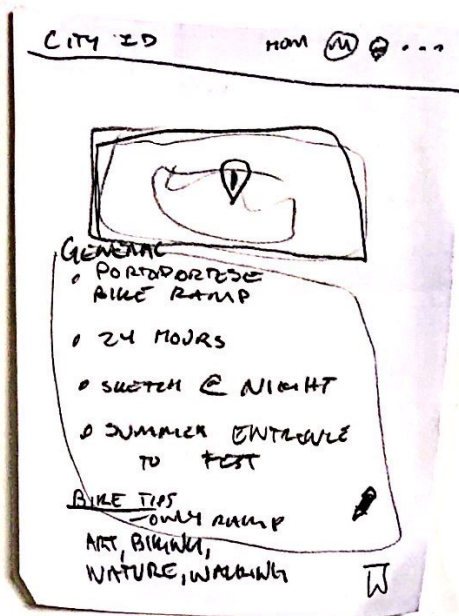 CITY ID
HOM M ...
GENERAL
• PORTAPORTESE
BIKE RAMP
• 24 HOURS
• SKETCH @ NIGHT
• SUMMER ENTRANCE
TO FEST
BIKE TIPS
- ONLY RAMP
ART, BIKING,
NATURE, WALKING